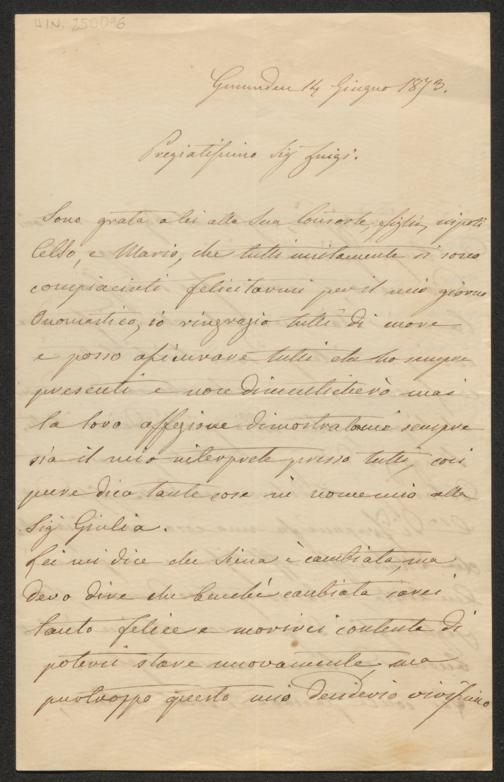 HIN. 250096
Gmunden 14 Giugno 1873.
Pregiatissimo Sig Luigi.
Sono grata a lei alla sua Consorte, figli, nipoti
Celso, e Mario, che tutti unitamente si sono
compiaciuti felicitarmi per il mio giorno
Onomastico, io ringrazio tutti di cuore
e posso assicurare tutti che ho sempre
presenti e non dimenticherò mai
la loro affezione dimostratami sempre
sia il mio interprete presso tutti, così
pure dica tante cose in nome mio alla
Sig Giulia.
Lei mi dice che Siena è cambiata, ma
devo dire che benchè cambiata sarei
tanto felice e morirei contenta di
potervi stare nuovamente, ma
purtroppo questo mio desiderio vivissimo